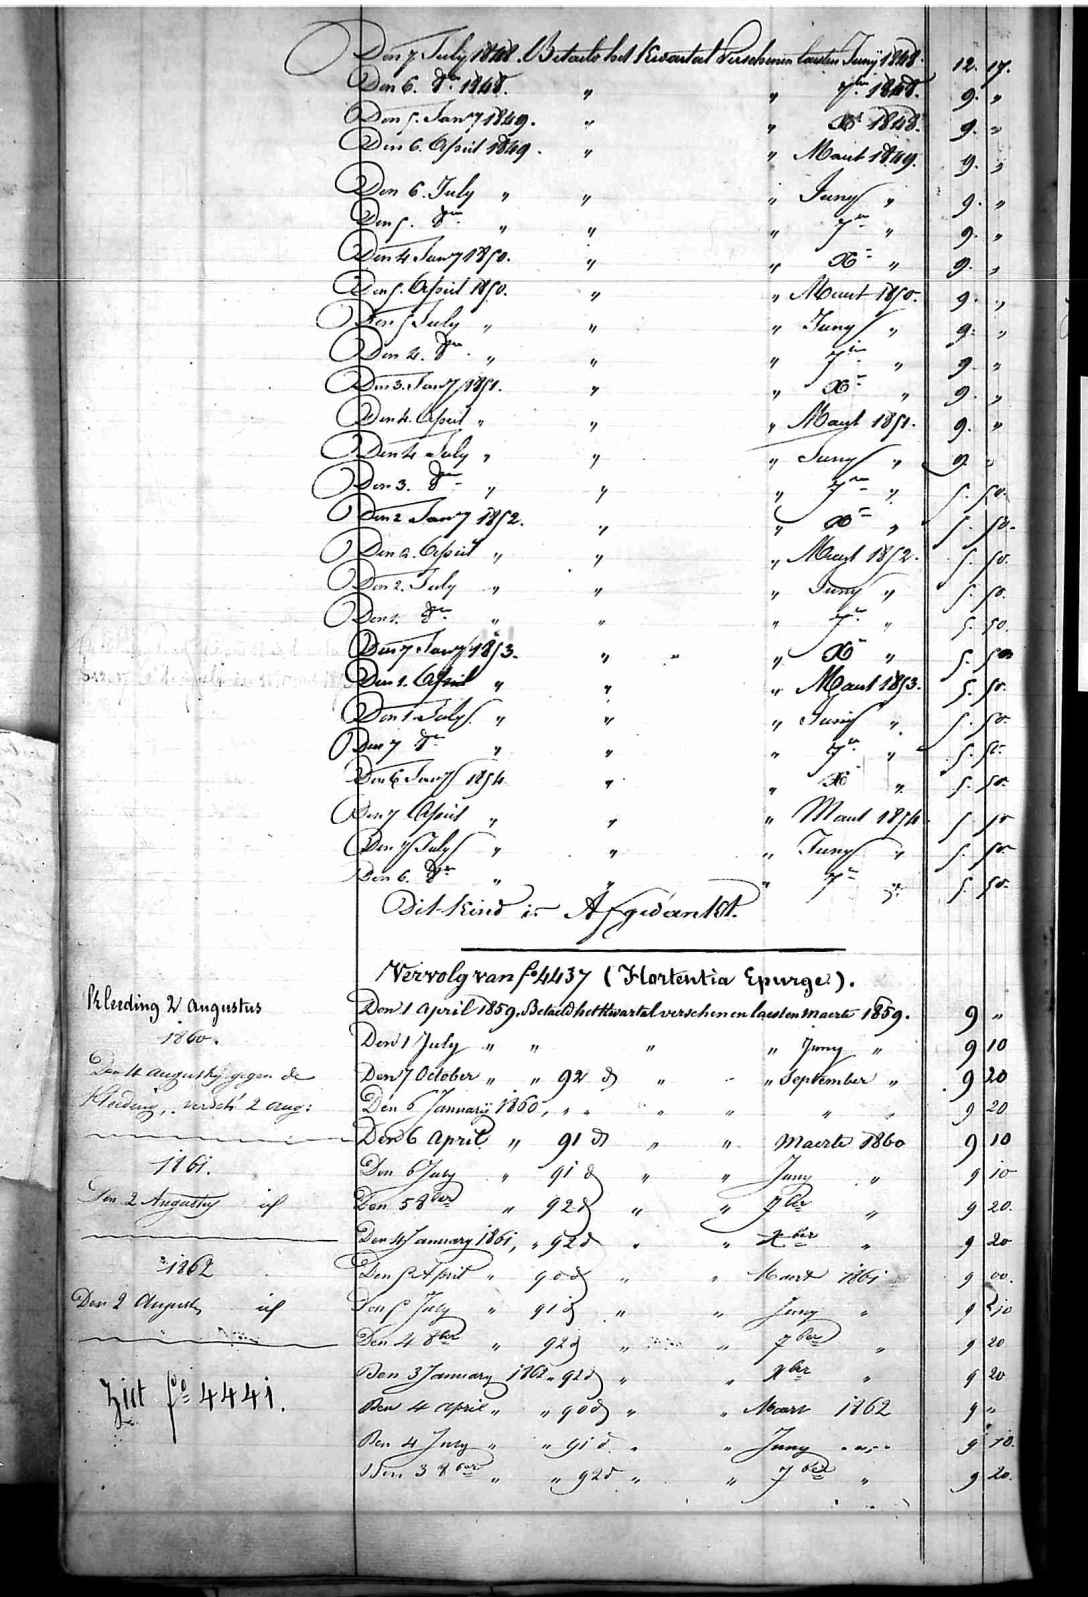 Den 7 July 1848. Betaelt het Kwartael Verschenen laesten Juny 1848. 12. 17.
Den 6. 8er 1848. " " 7er 1848. 9. "
Den 5. Jany 1849. " " Xr 1848. 9. "
Den 6. April 1849. " " Maert 1849. 9. "
Den 6. July " " " Juny " 9. "
Den 5. 8er " " " 7er " 9. "
Den 4 Jany 1850. " " Xr " 9. "
Den 5. April 1850. " " Maert 1850. 9. "
Den 5 July " " " Juny " 9. "
Den 4. 8er " " " 7er " 9 "
Den 3. Jany 1851. " " Xr " 9. "
Den 4. April " " " Maert 1851. 9. "
Den 4 July " " " Juny " 9 "
Den 3. 8er " " " 7er " 5. 50.
Den 2 Jany 1852. " " Xr " 5. 50.
Den 2. April " " " Maert 1852. 5. 50.
Den 2. July " " " Juny " 5. 50.
Den 1. 8er " " " 7er " 5. 50.
Den 7 Jany 1853. " " " Xr " 5. 50
Den 1. April " " " Maert 1853. 5. 50.
Den 1 July " " " Juny " 5. 50.
Den 7 8er " " " 7er " 5. 50.
Den 6 Jany 1854 " " Xr " 5. 50.
Den 7 April " " " Maert 1854 5 50
Den 7 July " " " Juny " 5. 50
Den 6. 8er " " " 7er " 5. 50.
Dit Kind is Afgedankt.
Vervolg van fo 4437 (Hortentia Epurge).
Kleeding 2 Augustus
1860.
Den 4 augusty gegen de
Kleeding, versch. 2 aug:
1861.
Den 2 Augusty id
1862
Den 2 August, id
Ziet fo 4441.
Den 1 April 1859. Betaeld het Kwartal verschenen laesten maerte 1859. 9 "
Den 1 July " " " " Juny " 9 10
Den 7 October " " 92 d " " September " 9 20
Den 6 January 1860, " " " " " " 9 20
Den 6 April " 91 d " " Maerte 1860 9 10
Den 6 July " 91 d " " Juny " 9 10
Den 5 8ber " 92 d " " 7ber " 9 20.
Den 4 January 1861, " 92 d " " Xber " 9 20
Den 5 April " 90 d " " Maert 1861 9 00.
Den 5 July " 91 d " " Juny " 9 10
Den 4 8ber " 92 d " " 7ber " 9 20
Den 3 January 1862 " 92 d " " Xber " 9 20
Den 4 April " " 90 d " " Mart 1862 9 "
Den 4 July " " 91 d " " Juny " " 9 10.
Den 3 8ber " " 92 d " " 7ber " 9 20.